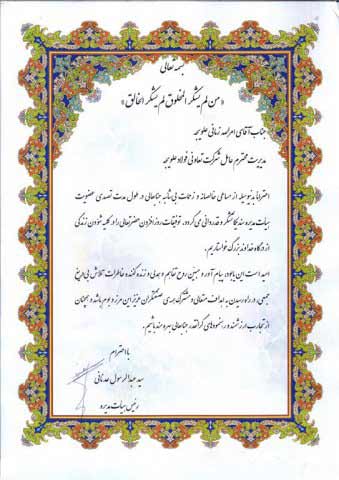 بسمه تعالی
«من لم یشکر المخلوق لم یشکر الخالق»
جناب آقای امراله زمانی علویجه
مدیریت محترم عامل شرکت تعاونی فولاد علویجه
احتراماً بدینوسیله از مساعی خالصانه و زحمات بی شائبه جنابعالی در طول مدت تصدی عضویت
هیات مدیره سندیکا تشکر و قدردانی می گردد. توفیقات روزافزون حضرتعالی را در کلیه شئون زندگی
از درگاه خداوند بزرگ خواستاریم.
امید است این یادبود پیام آور و مبین روح تفاهم و همدلی و زنده کننده خاطرات تلاش بی دریغ
جمعی، در راه رسیدن به اهداف متعالی و مشترک همه ی صنعتگران عزیز این مرز و بوم باشد و همچنان
از تجارب ارزشمند و رهنمودهای گرانقدر جنابعالی بهره مند باشیم.
با احترام
سید عبدالرسول عدنانی
رئیس هیات مدیره